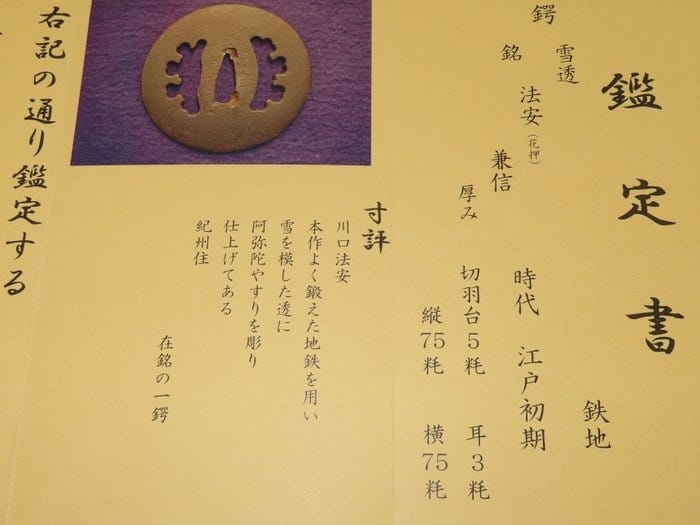 鑑定書
鉄地
雪透
鍔
銘 法安(花押)
兼信
時代 江戸初期
厚み 切羽台5粍 耳3粍
縦75粍 横75粍
寸評
川口法安
本作よく鍛えた地鉄を用い
雪を模した透に
阿弥陀やすりを彫り
仕上げてある
紀州住
在銘の一鍔
右記の通り鑑定する